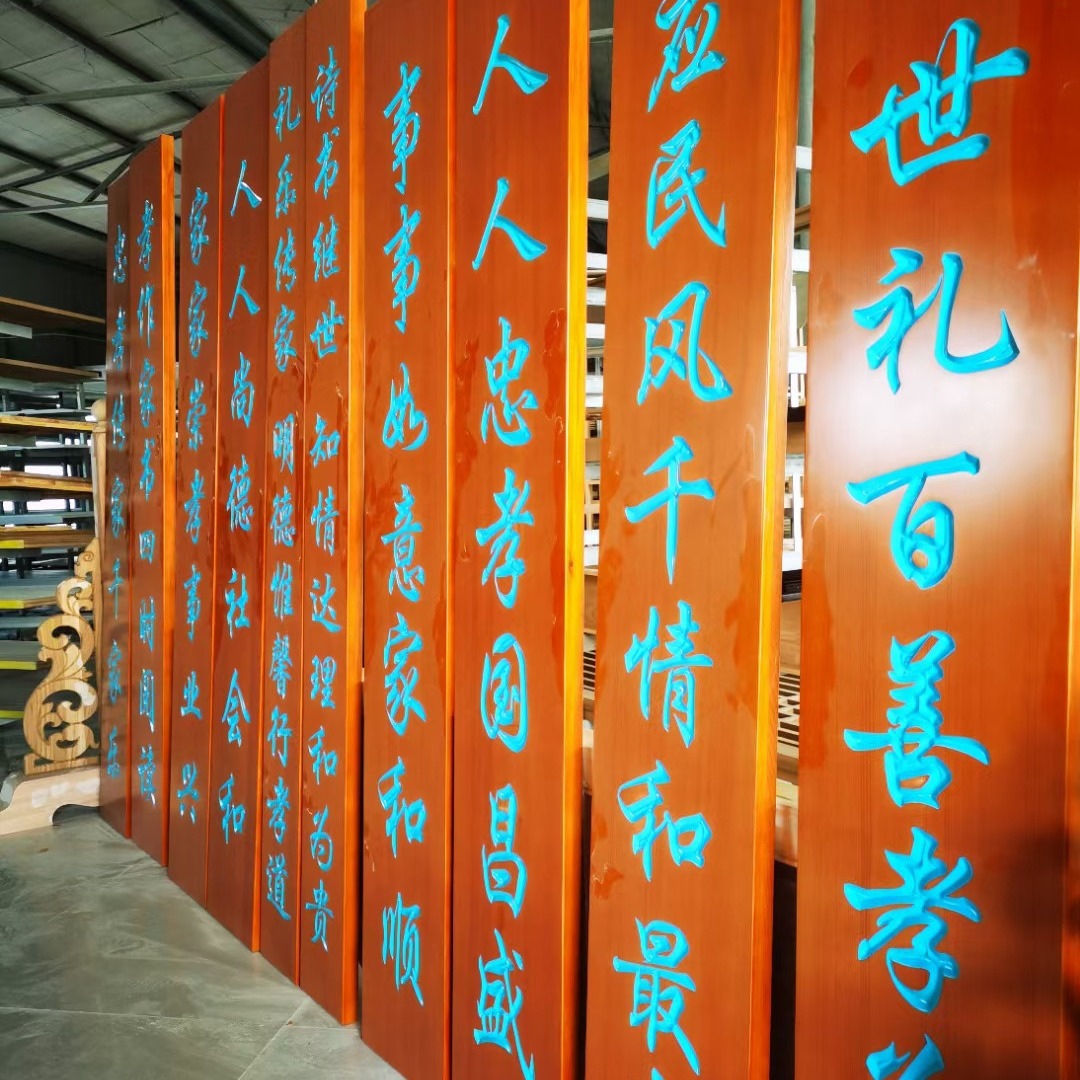 世礼百善孝
应民风千情和最
人人忠孝国昌盛
事事如意家和顺
诗书继世知情达理和为贵
礼乐传家明德惟馨行孝道
人人尚德社会和
家家崇孝事业兴
孝作家书四时阅读
忠孝传家